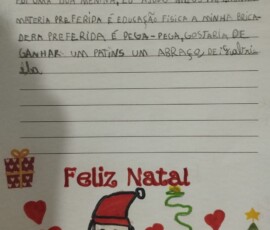 FUI UMA BOA MENINA, EU AJUDO MEUS
MATERIA PREFERIDA É EDUCAÇÃO FISICA A MINHA BRICA
DERA PREFERIDA É PEGA-PEGA, GOSTARIA DE
GANHAR UM PATINS UM ABRAÇO, DE
Feliz Natal